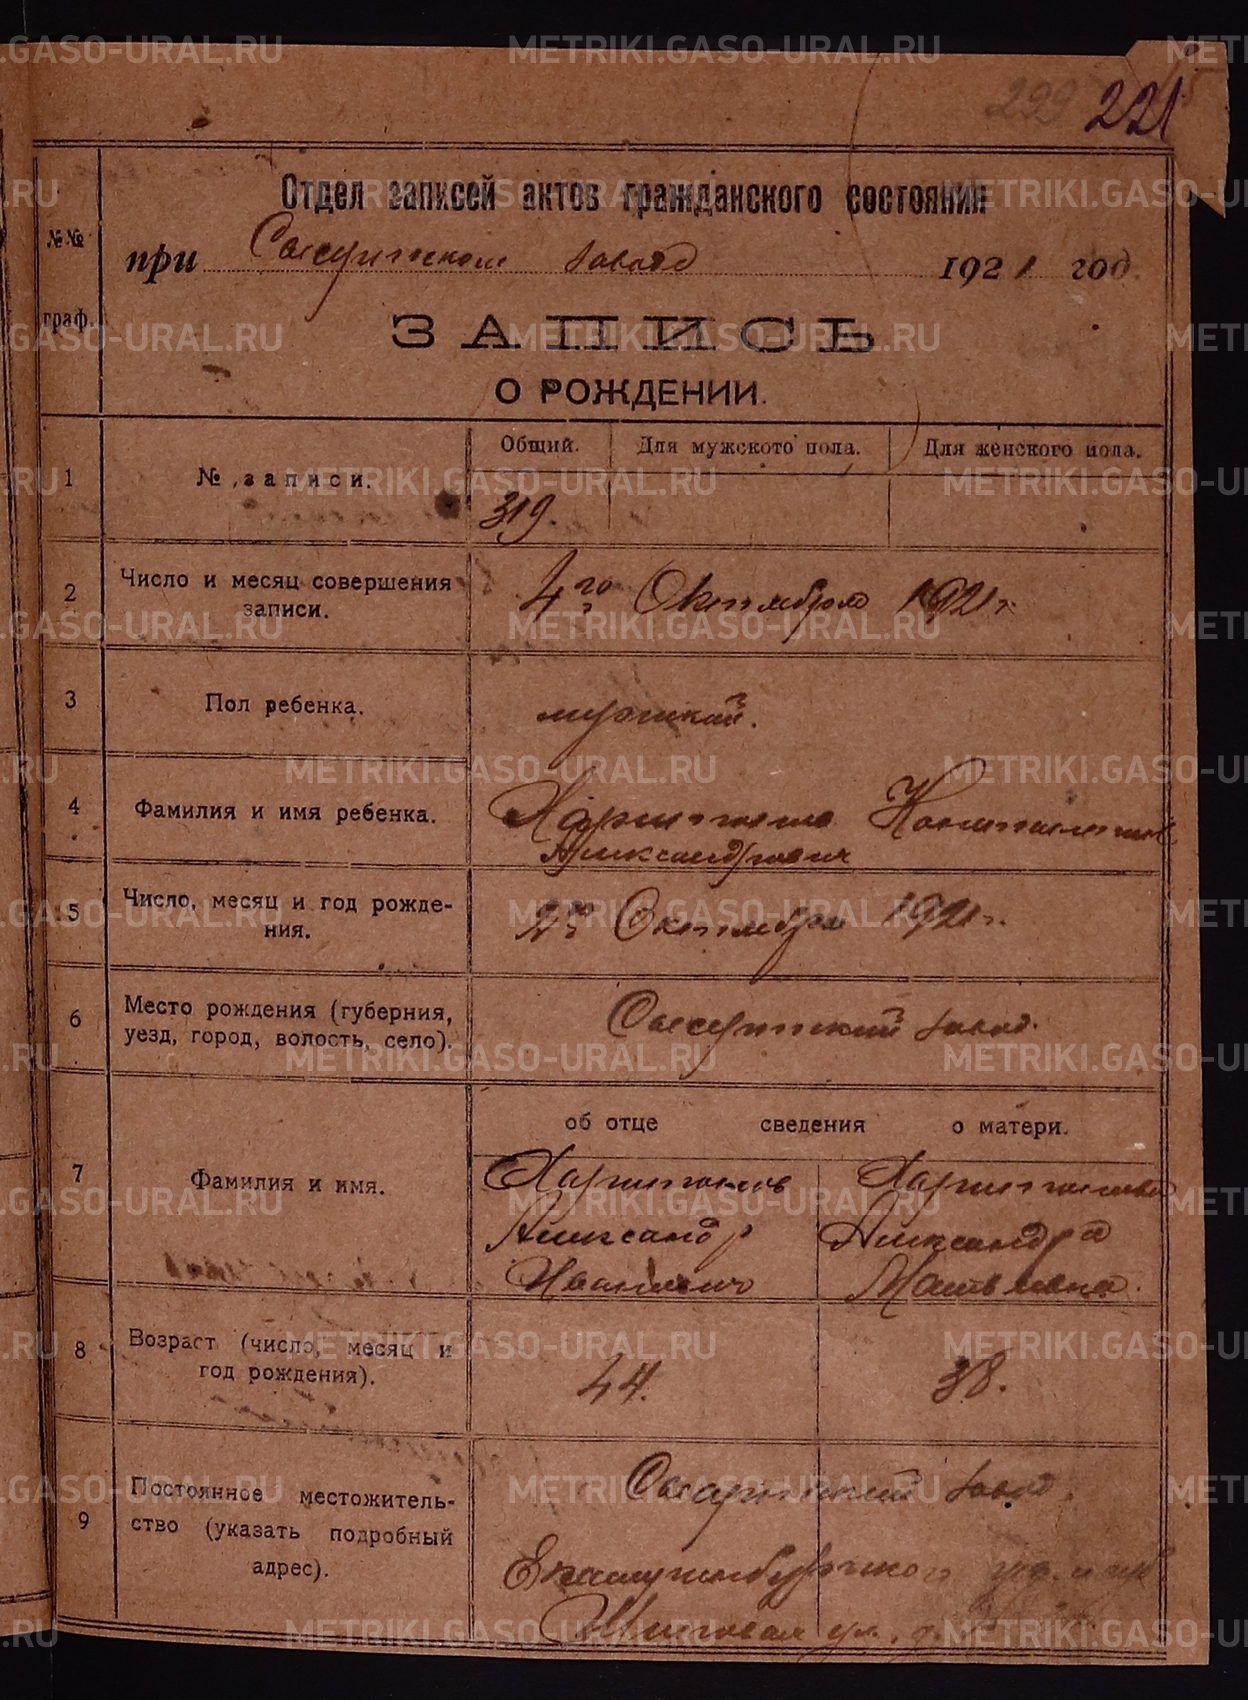 299 221
Отдел записей актов гражданского состояния
№№ при Сысертском заводе 1921 год.
граф.
ЗАПИСЬ
О РОЖДЕНИИ.
Общий. Для мужского пола. Для женского пола.
1 № записи.
319.
2 Число и месяц совершения
записи.
4го Октября 1921 г.
3 Пол ребенка.
мужской.
4 Фамилия и имя ребенка.
Харитонов Константин
Александрович
5 Число, месяц и год рожде-
ния.
2го Октября 1921 г.
6 Место рождения (губерния,
уезд, город, волость, село).
Сысертский завод.
об отце сведения о матери.
7 Фамилия и имя.
Харитонов Харитонова
Александр Александра
Иванович Матвеевна.
8 Возраст (число, месяц и
год рождения).
44. 38.
9 Постоянное местожитель-
ство (указать подробный
адрес).
Сысертский завод.
Екатеринбургского у.
ул.
METRIKI.GASO-URAL.RU